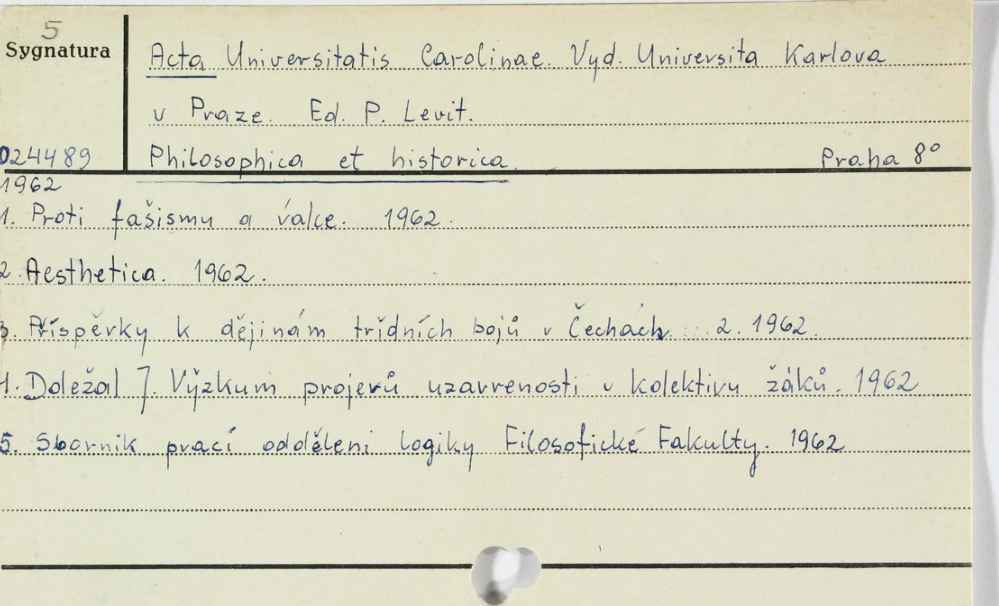 5
Sygnatura
Acta Universitatis Carolinae. Vyd. Universita Karlova
v Praze. Ed. P. Levit.
024489 Philosophica et historica. Praha 8°
1962
1. Proti fašismu a válce. 1962.
2. Aesthetica. 1962.
3. Příspěvky k dějinám třídních bojů v Čechách ... 2. 1962.
4. Doležal J. Výzkum projevů uzavrenosti v kolektivu žáků. 1962
5. Sbornik prací oddělení logiky Filosofické Fakulty. 1962